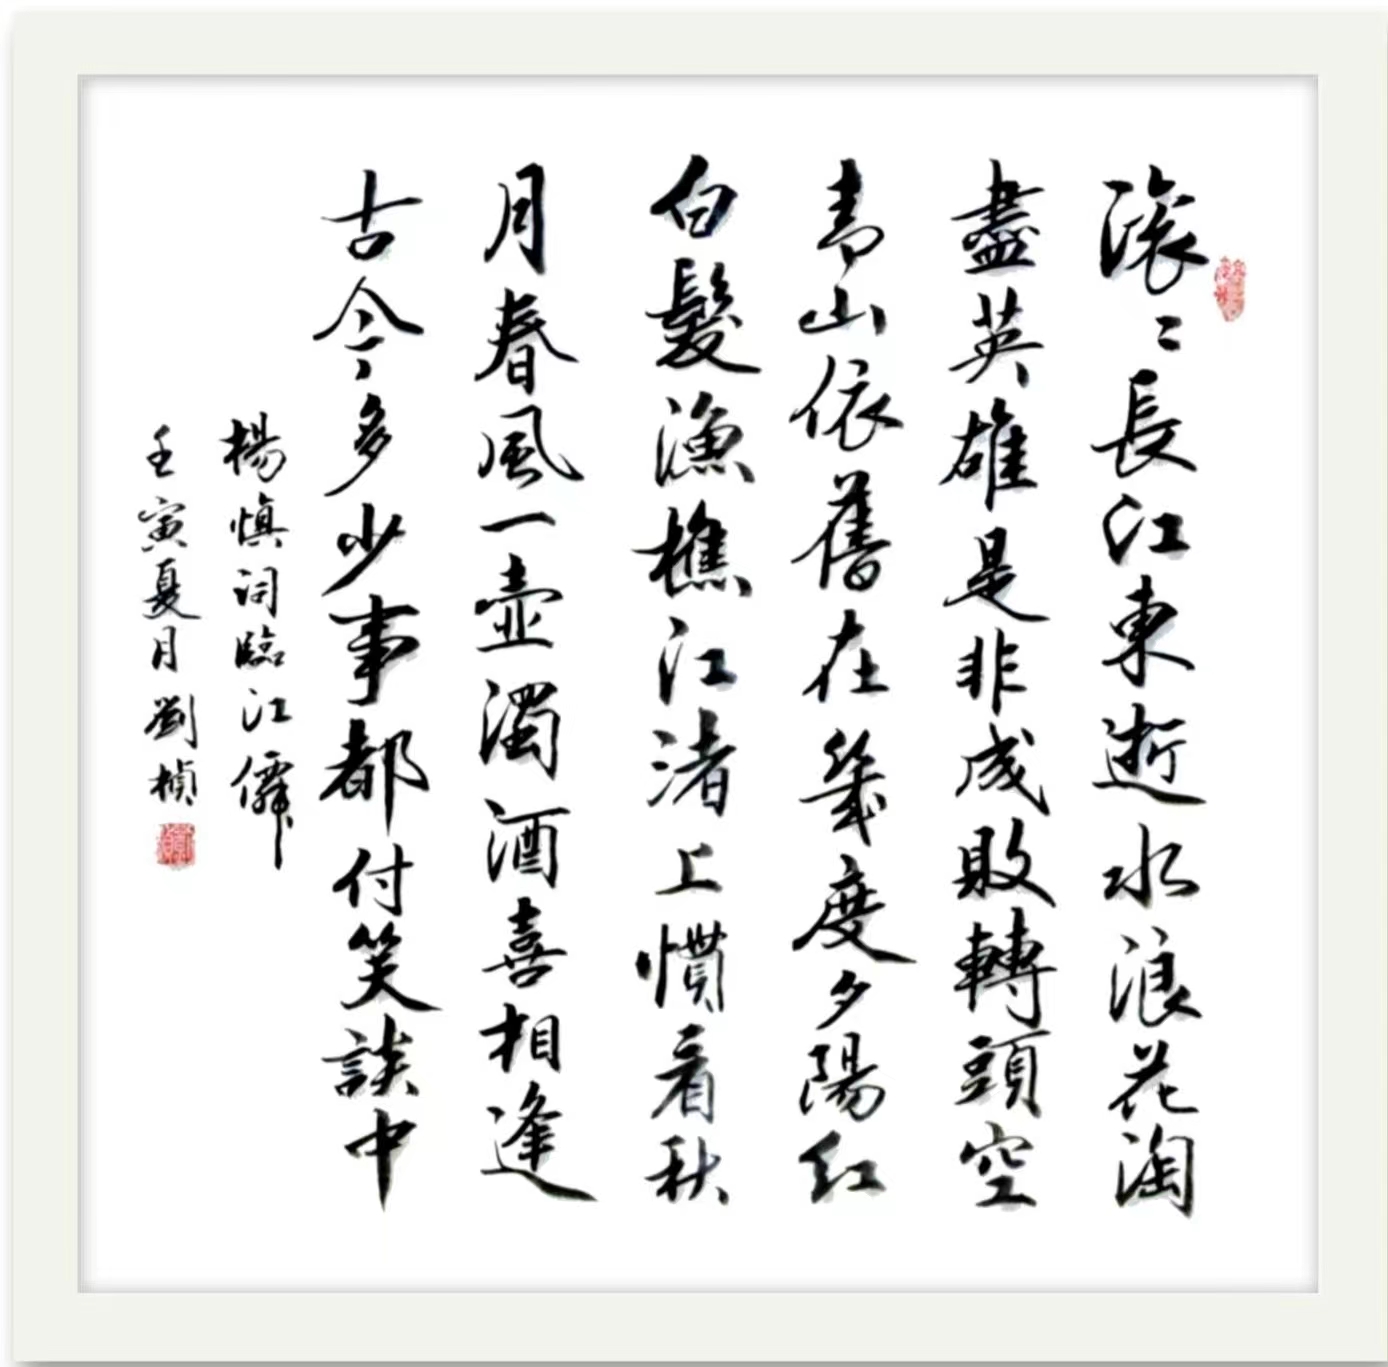 滚〻長江東逝水浪花淘
盡英雄是非成敗轉頭空
青山依舊在幾度夕陽紅
白髮漁樵江渚上慣看秋
月春風一壺濁酒喜相逢
古今多少事都付笑談中
楊慎词臨江僊
壬寅夏月劉楨